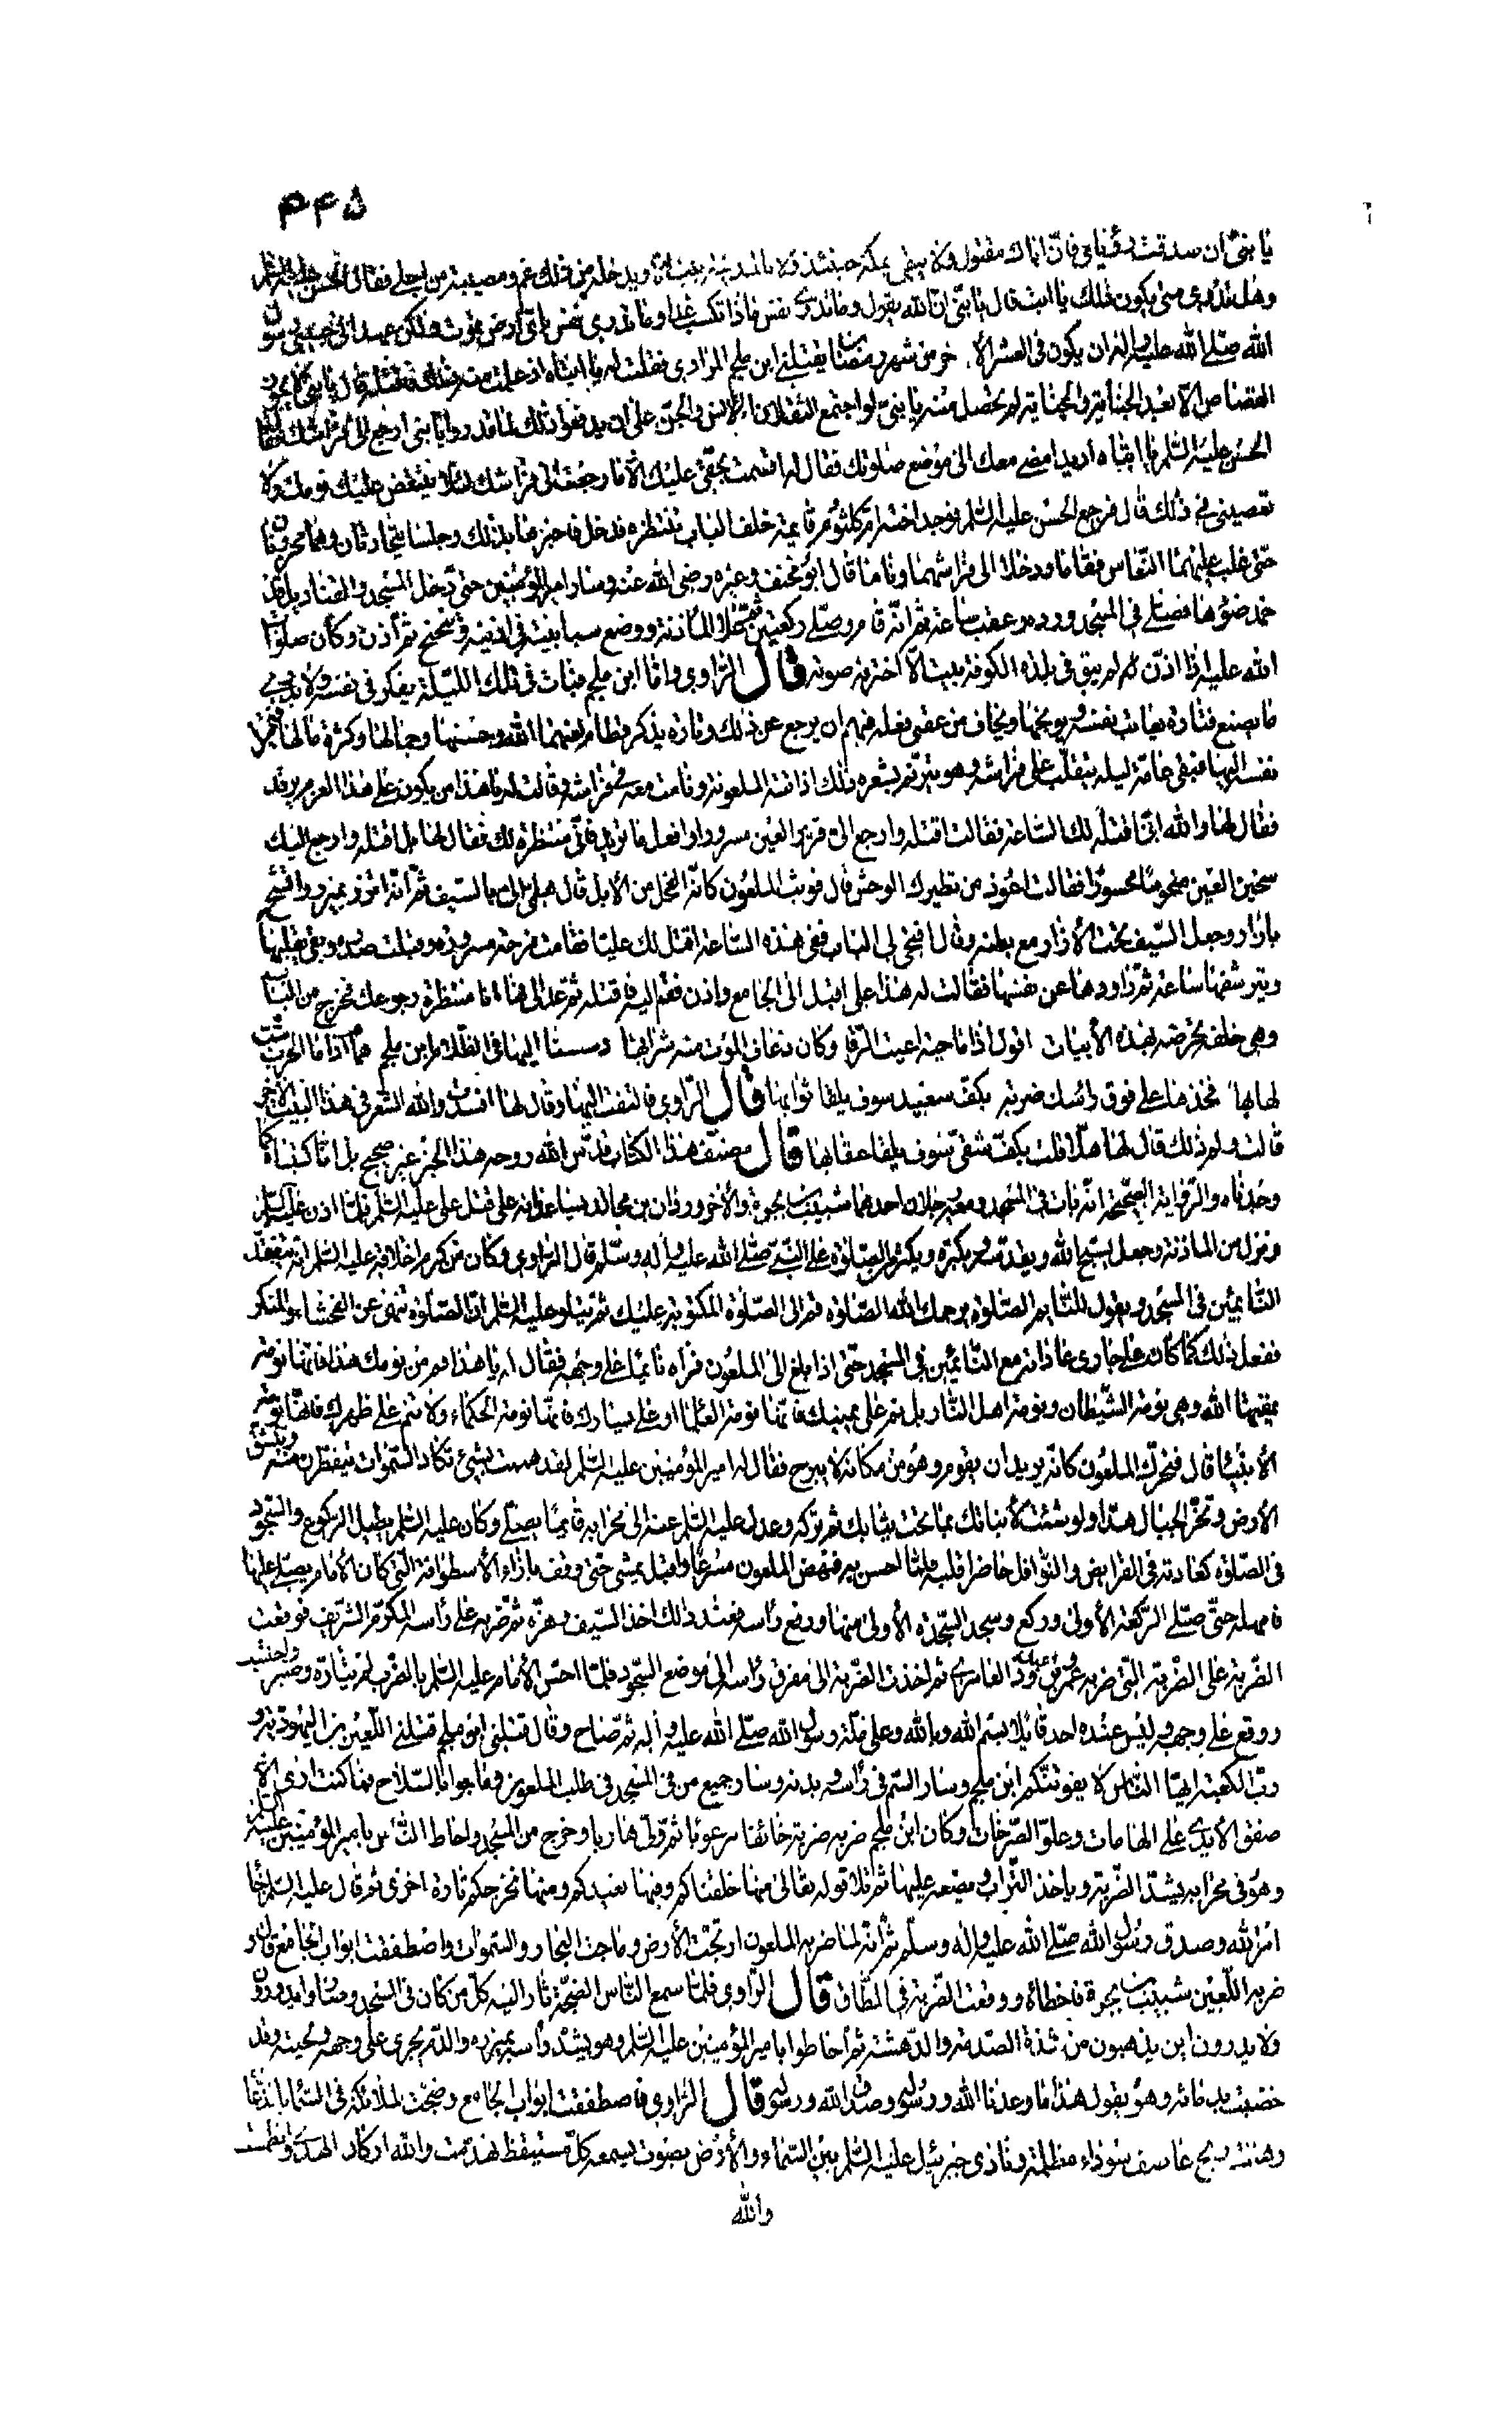 ۳۴۵
يا بنى ان صدقت رؤياى فان اباك مقتول ولا يبقى بمكة حينئذ ولا بالمدينة بيت الا ويدخله من ذلك غم ومصيبة من اجلى فقال الحسن عليه السلم
وهل تدرى متى يكون ذلك يا ابت قال يا بنى ان الله يقول وما تدرى نفس ماذا تكسب غدا وما تدرى نفس باى ارض تموت ولكن عهد الى حبيبى رسول
الله صلى الله عليه واله ان يكون فى العشر الأواخر من شهر رمضان يقتلنى ابن ملجم المرادى فقلت له يا ابتاه اذ علمت منه ذلك فاقتله قال يا بنى لا يجوز
القصاص الا بعد الجناية والجناية لم تحصل منه يا بنى لو اجتمع الثقلان الإنس والجن على ان يدفعوا ذلك لما قدروا يا بنى ارجع الى فراشك فقال
الحسن عليه السلم يا ابتاه اريد امضى معك الى موضع صلوتك فقال له اقسمت بحقى عليك الا ما رجعت الى فراشك لئلا يتنغص عليك نومك ولا
تعصينى فى ذلك قال فرجع الحسن عليه السلم فوجد اخته ام كلثوم قائمة خلف الباب تنتظره فدخل فاخبرها بذلك وجلسا يتحادثان وهما محزونان
حتى غلب عليهما النعاس فقاما ودخلا الى فراشهما وناما قال ابو مخنف وغيره رضى الله عنه وسار امير المؤمنين حتى دخل المسجد والقناديل قد
خمد ضوئها فصلى فى المسجد ورده وعقب ساعة ثم انه قام وصلى ركعتين ثم علا المأذنة ووضع سبابتيه فى اذنيه وتنحنح ثم اذن وكان صلوات
الله عليه اذا اذن لم يبق فى بلدة الكوفة بيت الا اخترقه صوته قال الراوى واما ابن ملجم فبات فى تلك الليلة يفكر فى نفسه ولا يدرى
ما يصنع فتارة يعاتب نفسه ويوبخها ويخاف من عقبى فعله فيهم ان يرجع عن ذلك وتارة يذكر قطام لعنها الله وحسنها وجمالها وكثرة مالها فتميل
نفسه اليها فبقى عامة ليله يتقلب على فراشه وهو يترنم بشعره ذلك اذ اتته الملعونة ونامت معه فى فراشه وقالت له يا هذا من يكون على هذا العزم يرقد
فقال لها والله انى اقتله لك الساعة فقالت اقتله وارجع الى قرير العين مسرورا وافعل ما تريد فانى منتظرة لك فقال لها بل اقتله وارجع اليك
سخين العين منحوسا محسورا فقالت اعوذ من تطيرك الوحش قال فوثب الملعون كانه الفحل من الأبل قال هلمى الى بالسيف ثم انه اتزر بمئزر واتشح
بازار وجعل السيف تحت الأزار مع بطنه وقال افتحى لى الباب ففى هذه الساعة اقتل لك عليا فقامت فرحة مسرورة وقبلت صدره وبقى يقبلها
ويترشفها ساعة ثم راودها عن نفسها فقالت له هذا على اقبل الى الجامع واذن فقم اليه فاقتله ثم عد الى فها انا منتظرة رجوعك فخرج من الباب
وهى خلفه تحرضه بهذه الأبيات اقول اذا ما حية اعيت الرقا وكان ذعاف الموت منه شرابها دسسنا اليها فى الظلام ابن ملجم همام اذا ما الحرب شبت
لهابها فخذها على فوق راسك ضربة بكف سعيد سوف يلقا ثوابها قال الراوى فالتفت اليها وقال لها افسدت والله الشعر فى هذا البيت الآخر
قالت ولم ذلك قال لها هلا قلت بكف شقى سوف يلقا عقابها قال مصنف هذا الكتاب قدس الله روحه هذا الخبر غير صحيح بل انا كتبناه كما
وجدناه والرواية الصحيحة انه بات فى المسجد ومعه رجلان احدهما شبيب بن بجرة والأخر وردان بن مجالد يساعدانه على قتل على عليه السلم فلما اذن عليه السلم
ونزل من المأذنة وجعل يسبح الله ويقدسه ويكبره ويكثر من الصلوة على النبى صلى الله عليه واله وسلم قال الراوى وكان من كرم اخلاقه عليه السلم انه يتفقد
النائمين فى المسجد ويقول للنائم الصلوة يرحمك الله الصلوة قم الى الصلوة المكتوبة عليك ثم يتلو عليه السلم ان الصلوة تنهى عن الفحشاء والمنكر
ففعل ذلك كما كان على جارى عادته مع النائمين فى المسجد حتى اذا بلغ الى الملعون فراه نائما على وجهه فقال له يا هذا قم من نومك هذا فانها نومة
يمقتها الله وهى نومة الشيطان ونومة اهل النار بل نم على يمينك فانها نومة العلماء او على يسارك فانها نومة الحكماء ولا تنم على ظهرك فانها نومة
الأنبياء قال فتحرك الملعون كانه يريد ان يقوم وهو من مكانه لا يبرح فقال له امير المؤمنين عليه السلم لقد هممت بشىء تكاد السموات يتفطرن منه وتنشق
الأرض وتخر الجبال هدا ولو شئت لأنبأتك بما تحت ثيابك ثم تركه وعدل عليه السلم عنه الى محرابه قائما يصلى وكان عليه السلم يطيل الركوع والسجود
فى الصلوة كعادته فى الفرايض والنوافل حاضرا قلبه فلما احس به فنهض الملعون مسرعا واقبل يمشى حتى وقف بازاء الأسطوانة التى كان الأمام يصلى عليها
فامهله حتى صلى الركعة الأولى وركع وسجد السجدة الأولى منها ورفع راسه فعند ذلك اخذ السيف وهزه ثم ضربه على راسه المكرم الشريف فوقعت
الضربة على الضربة التى ضربه عمرو بن عبد ود العامرى ثم اخذت الضربة الى مفرق راسه الى موضع السجود فلما احس الأمام عليه السلم بالضرب لم يتاوه وصبر واحتسب
ووقع على وجهه وليس عنده احد قائلا بسم الله وبالله وعلى ملة رسول الله صلى الله عليه واله ثم صاح وقال قتلنى ابن ملجم قتلنى اللعين بن اليهودية و
رب الكعبة ايها الناس لا يفوتنكم ابن ملجم وسار السم فى راسه وبدنه وسار جميع من فى المسجد فى طلب الملعون وماجوا بالسلاح فما كنت ارى الا
صفق الأيدى على الهامات وعلو الصرخات وكان ابن ملجم ضربه ضربة خائفا مرعوبا ثم ولى هاربا وخرج من المسجد واحاط الناس بامير المؤمنين عليه السلم
وهو فى محرابه يشد الضربة وياخذ التراب ويضعه عليها ثم تلا قوله تعالى منها خلقناكم وفيها نعيدكم ومنها نخرجكم تارة اخرى ثم قال عليه السلم جاء
امر الله وصدق رسول الله صلى الله عليه واله وسلم ثم انه لما ضربه الملعون ارتجت الأرض وماجت البحار والسموات واصطفقت ابواب الجامع قال و
ضربه اللعين شبيب بن بجرة فاخطاه ووقعت الضربة فى الطاق قال الراوى فلما سمع الناس الضجة ثار اليه كل من كان فى المسجد وصاروا يدورون
ولا يدرون اين يذهبون من شدة الصدمة والدهشة ثم احاطوا بامير المؤمنين عليه السلم وهو يشد راسه بمئزره والدم يجرى على وجهه ولحيته وقد
خضبت بدمائه وهو يقول هذا ما وعدنا الله ورسوله وصدق الله ورسوله قال الراوى فاصطفقت ابواب الجامع وضجت الملائكة فى السماء بالدعاء
وهبت ريح عاصف سوداء مظلمة ونادى جبرئيل عليه السلم بين السماء والأرض بصوت يسمعه كل مستيقظ تهدمت والله اركان الهدى وانطمست
والله